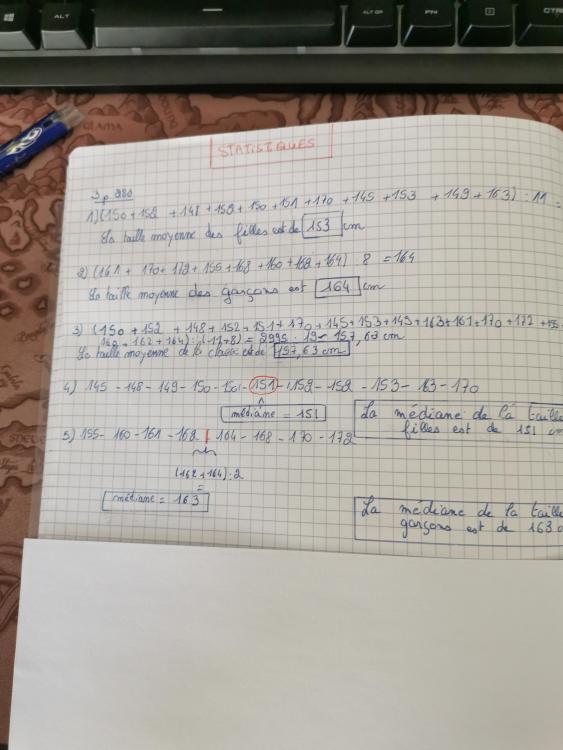 ALT
ALT GR
FN
CTRL
STATISTIQUES
3 p 280
1) (150 + 152 + 148 + 152 + 150 + 151 + 170 + 145 + 153 + 149 + 163) : 11 =
La taille moyenne des filles est de 153 cm
2) (161 + 170 + 172 + 155 + 168 + 160 + 162 + 164) : 8 = 164
La taille moyenne des garçons est 164 cm
3) (150 + 152 + 148 + 152 + 151 + 170 + 145 + 153 + 149 + 163 + 161 + 170 + 172 + 155
+ 162 + 164) : (11+8) = 2995 : 19 = 157,63 cm
La taille moyenne de la classe est de 157,63 cm
4) 145 - 148 - 149 - 150 - 150 - 151 - 152 - 152 - 153 - 163 - 170
médiane = 151
La médiane de la taille
filles est de 151 cm
5) 155 - 160 - 161 - 162 | 164 - 168 - 170 - 172
(162 + 164) : 2
=
médiane = 163
La médiane de la taille
garçons est de 163 c